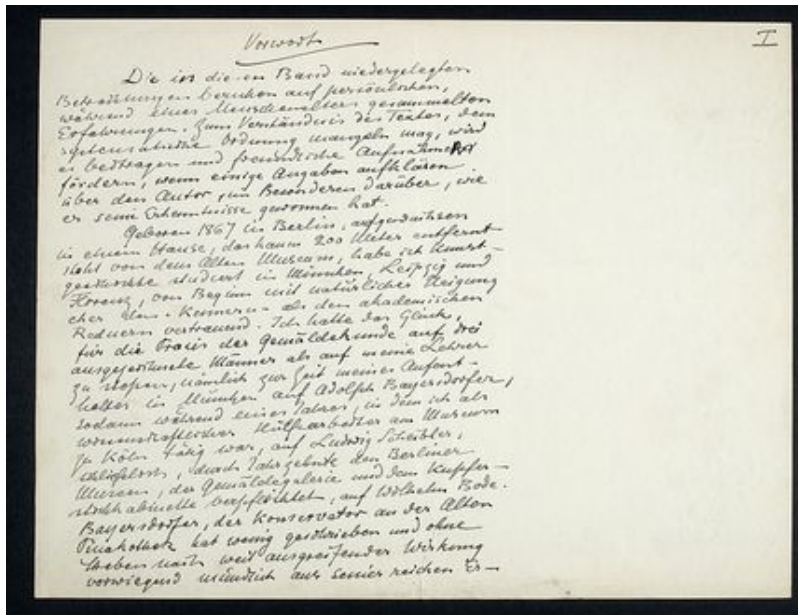 I
Vorwort
Die in diesem Band niedergelegten
Betrachtungen beruhen auf persönlichen,
während eines Menschenalters gesammelten
Erfahrungen. Zum Verständnis des Textes, dem
systematische Ordnung mangeln mag, wird
es beitragen und freundliche Aufnahme
fördern, wenn einige Angaben aufklären
über den Autor, im Besonderen darüber, wie
er seine Erkenntnisse gewonnen hat.
Geboren 1867 in Berlin, aufgewachsen
in einem Hause, das kaum 200 Meter entfernt
steht von dem Alten Museum, habe ich Kunst-
geschichte studiert in München, Leipzig und
Florenz, von Beginn mit natürlicher Neigung
eher den „Kennern“ als den akademischen
Rednern vertrauend. Ich hatte das Glück,
für die Praxis der Gemäldekunde auf drei
ausgezeichnete Männer als auf meine Lehrer
zu stossen, nämlich zur Zeit meines Aufent-
haltes in München auf Adolph Bayersdorfer,
sodann während eines Jahres, in dem ich als
wissenschaftlicher Hülfsarbeiter am Museum
zu Köln tätig war, auf Ludwig Scheibler,
schließlich, durch Jahrzehnte den Berliner
Museen, der Gemäldegalerie und dem Kupfer-
stichkabinette verpflichtet, auf Wilhelm Bode.
Bayersdorfer, der Konservator an der Alten
Pinakothek hat wenig geschrieben und ohne
Streben nach weit ausgreifender Wirkung
vorwiegend mündlich aus seiner reichen Er-